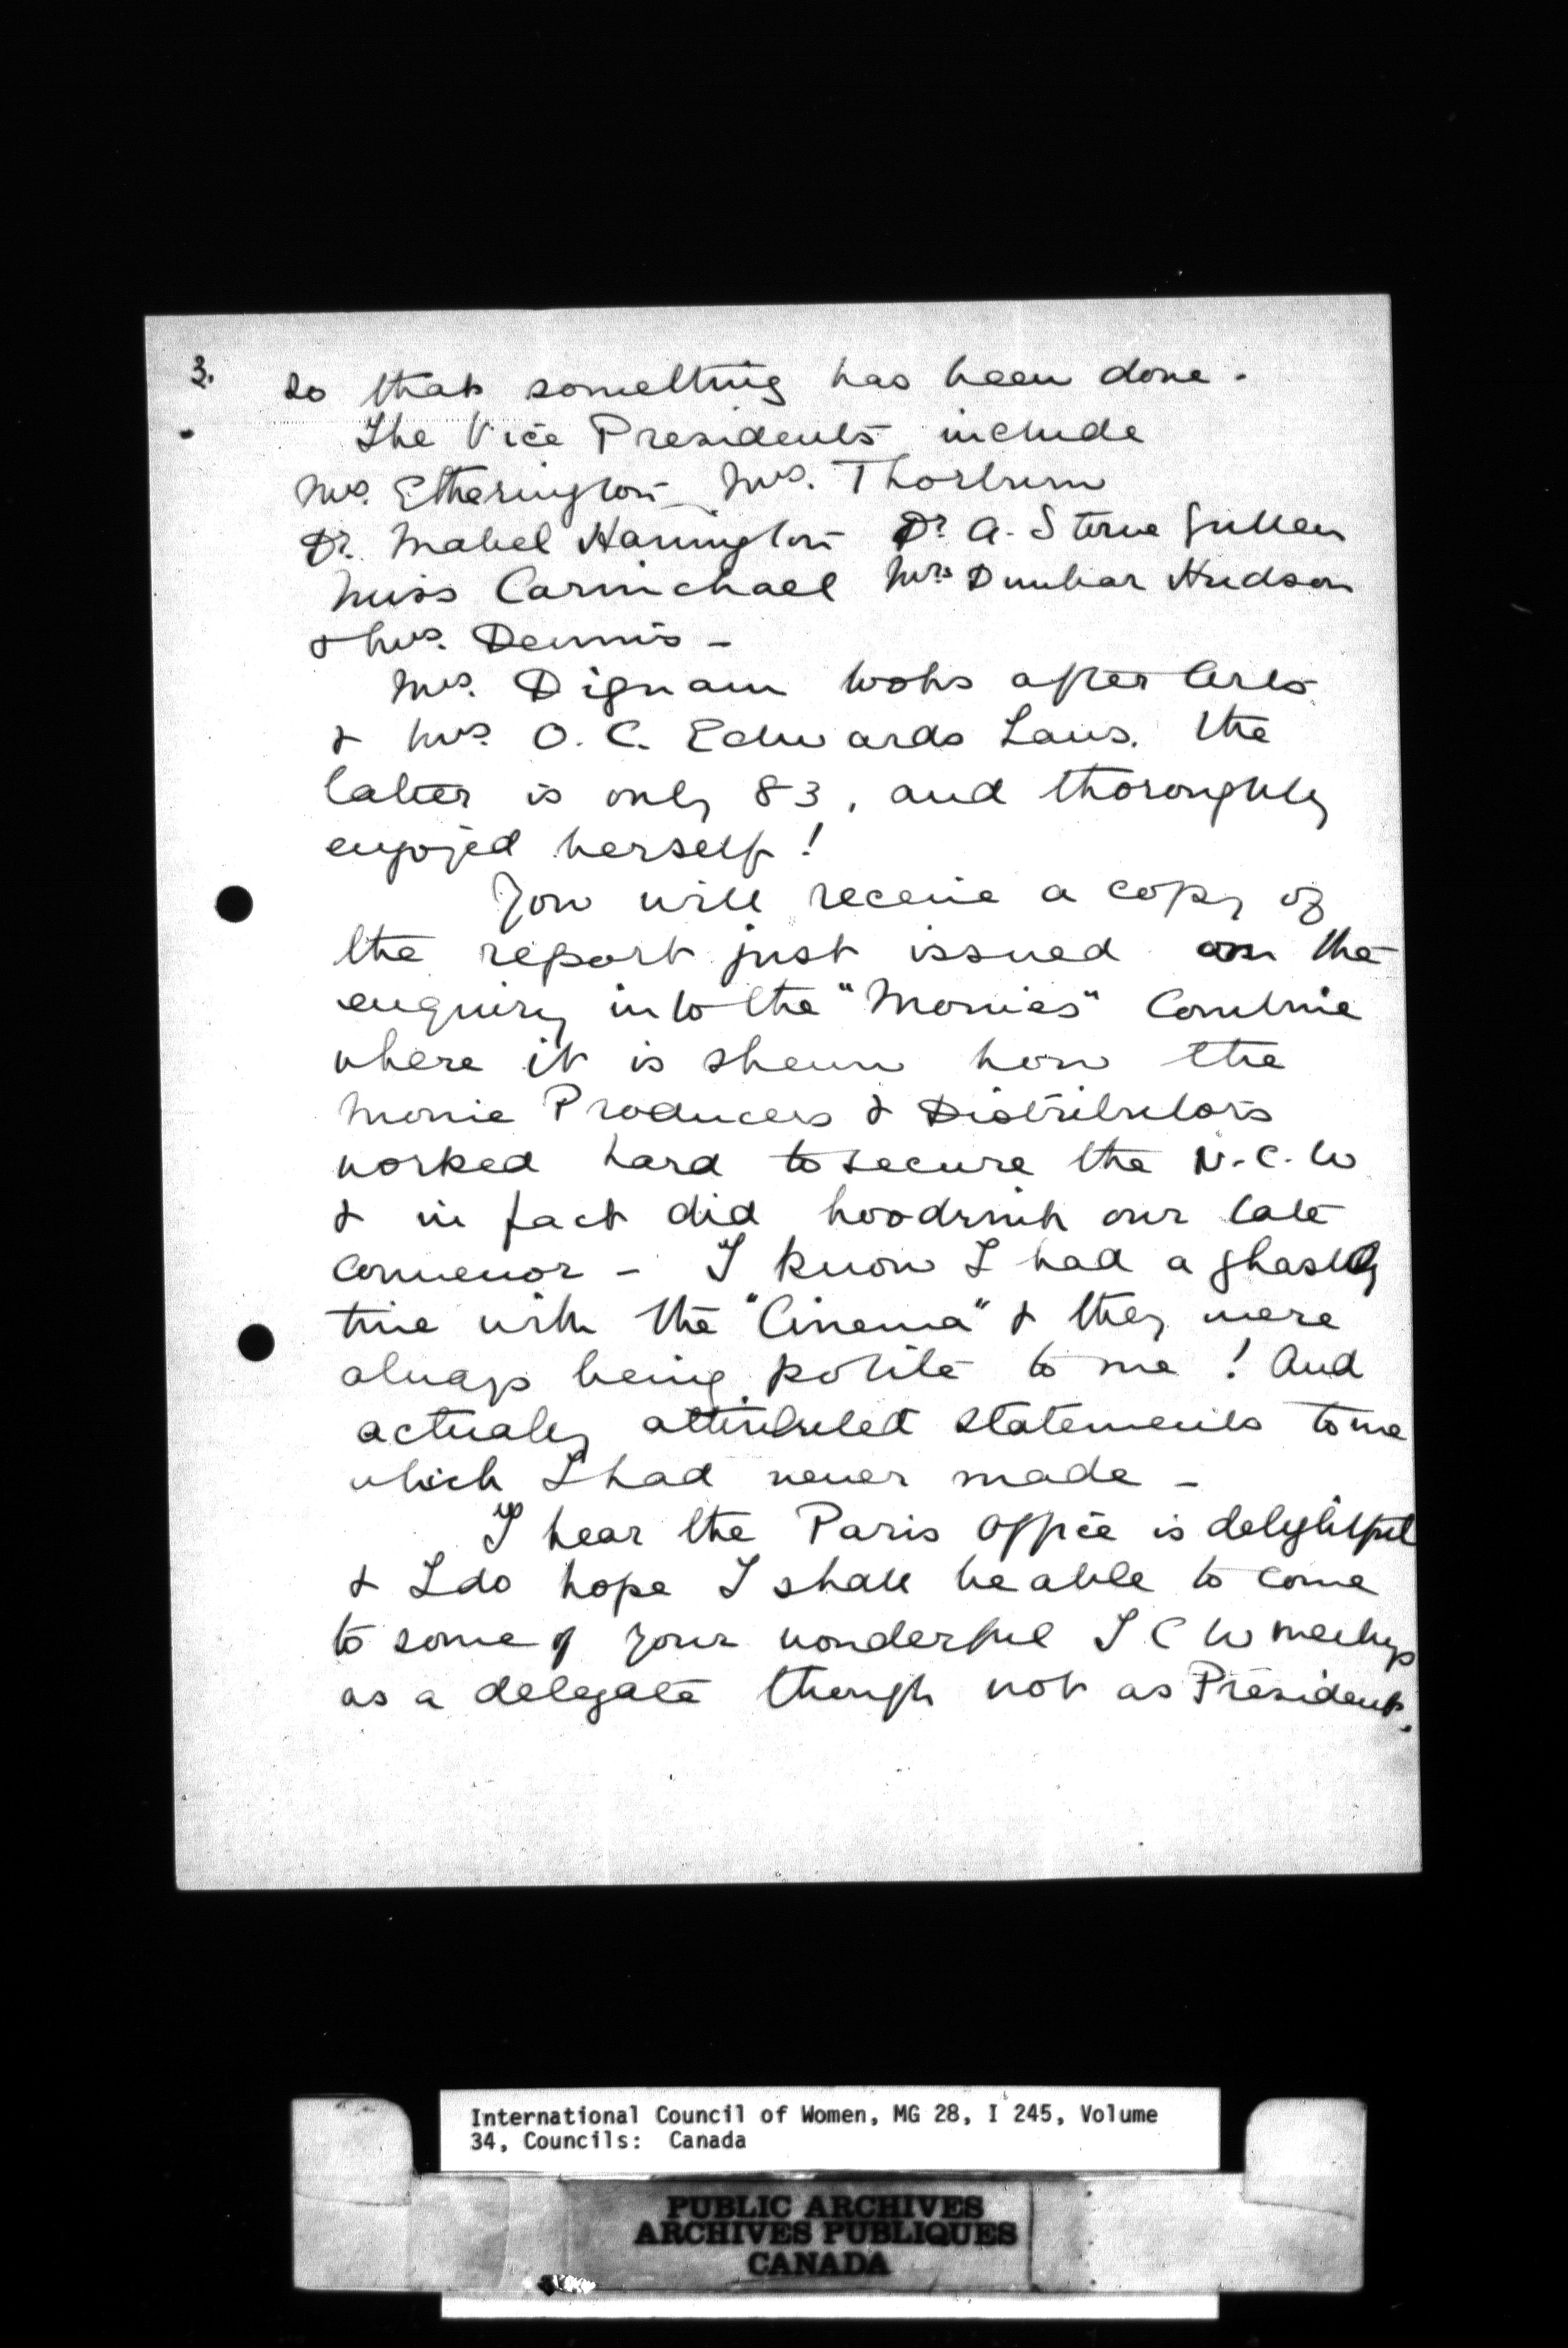 3.
so that something has been done.
The Vice Presidents include
Mrs. Etherington Mrs. Thorburn
Dr. Mabel Hannington Dr. A. Stowe Gullen
Miss Carmichael Mrs Dunbar Hudson
& Mrs. Dennis -
Mrs. Dignam looks after Arts
& Mrs. O. C. Edwards Laws. The
latter is only 83, and thoroughly
enjoyed herself!
You will receive a copy of
the report just issued on the
enquiry into the "Movies" Combine
where it is shewn how the
Movie Producers & Distributors
worked hard to secure the N.C.W
& in fact did hoodwink our late
Convenor - I know I had a ghastly
time with the "Cinema" & they were
always being polite to me! And
actually attributed statements to me
which I had never made -
I hear the Paris Office is delightful
& I do hope I shall be able to come
to some of your wonderful I C W meetings
as a delegate though not as President.
International Council of Women, MG 28, I 245, Volume
34, Councils: Canada
PUBLIC ARCHIVES
ARCHIVES PUBLIQUES
CANADA